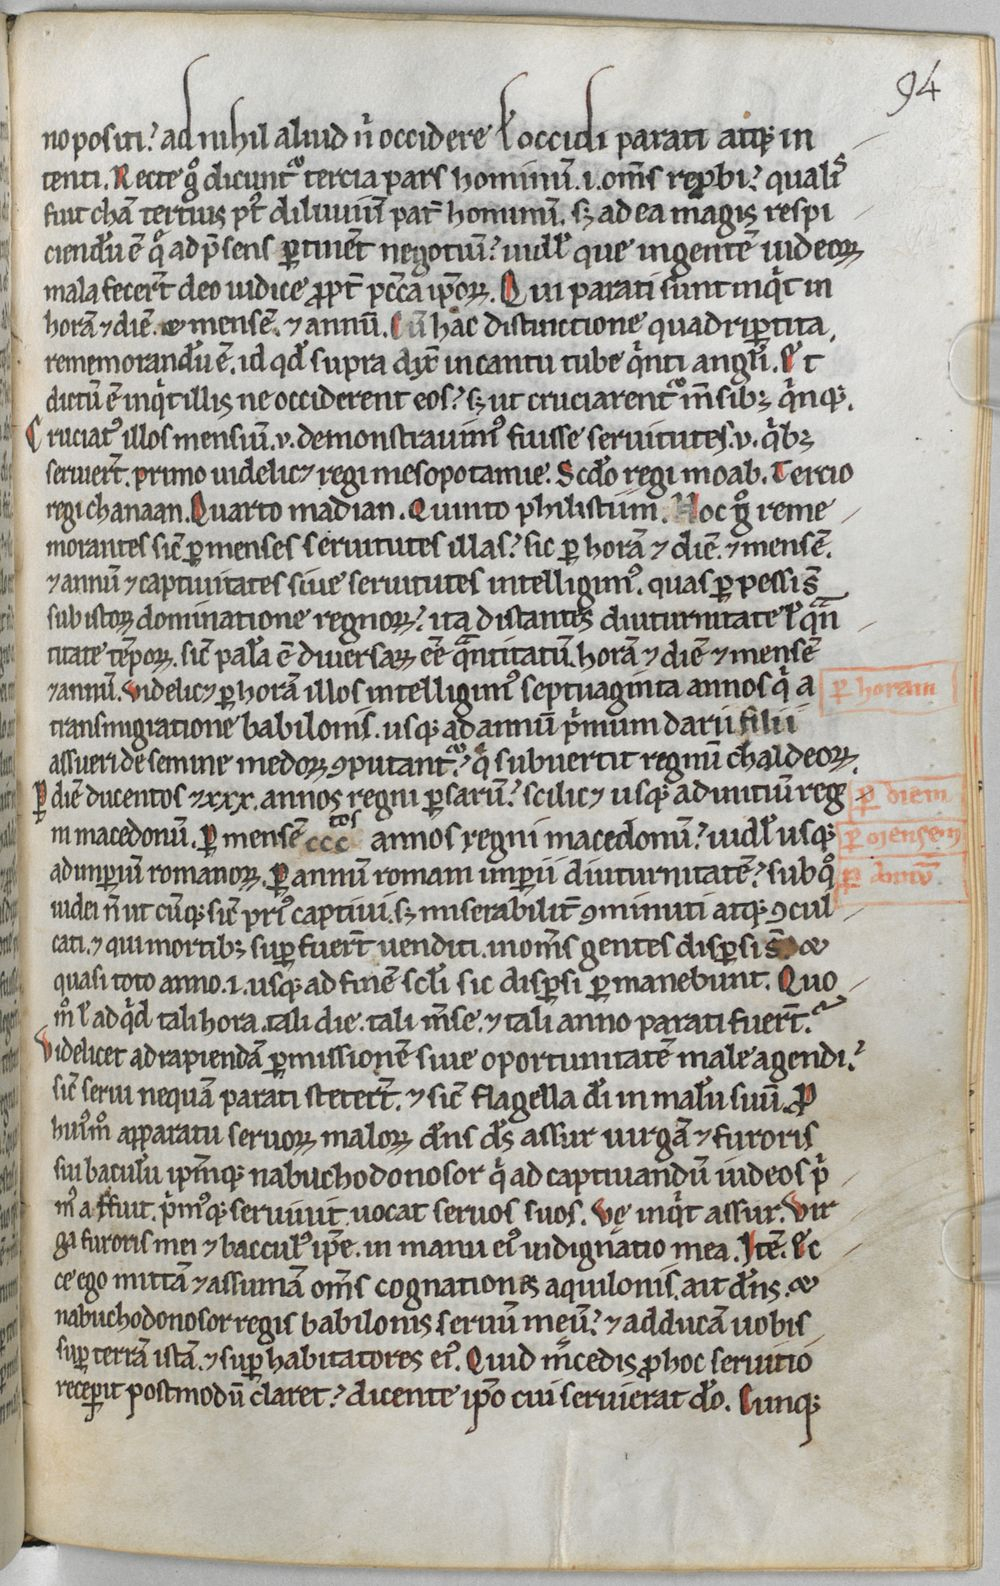 94
no positi? ad nihil aliud n̄ occidere ł occidi parati atq; in
tenti. Recte g̊ dicunt᷑ tercia pars hominū .i. om̄s rep̱bi? qualit̄
fuit chā tertius p̄t diluuiū pat̄ hominū. sꝫ ad ea magis respi
ciendū ē q̊ ad p̄sens ꝑtinet negotiū? uidł que ingentē uideoꝝ
mala fecer̄t deo iudice ꝓpt̄ pc̄ca ip̄oꝝ. Qui parati sunt inq̇t in
horā ⁊ diē. & mensē. ⁊ annū. Cū hac distinctione quadriꝑtita,
rememorandū ē. id qd̄ supra dix̄ in cantu tube q̇nti angłi. Et
dictū ē inq̇t illis ne occiderent eos? sꝫ ut cruciarent᷑ m̄sibꝫ q̇nq;.
Cruciat᷒ illos mensiū .v. demonstrauim᷒ fuisse seruitutes .v. q̇bꝫ
seruier̄t. primo uidelicꝫ regi mesopotamie. Scd̄o regi moab. Tercio
regi chanaan. Quarto madian. Quinto philistiim. Hoc g̊ reme
morantes sic̄ ꝑ menses seruitutes illas? sic ꝑ horā ⁊ diē. ⁊ mensē.
⁊ annū ⁊ captiuitates siue seruitutes intelligim᷒. quas ꝑpessi s̄
sub istoꝝ dominatione regnoꝝ? ita distantes diuturnitate ł q̄n
titate tēpoꝝ. sic̄ palā ē diuersaꝝ eē q̄ntitatū. horā ⁊ diē ⁊ mensē
⁊ annū. Videlicꝫ ꝑ horā illos intelligim᷒ septuaginta annos q̇ a
ꝑ horam
transmigratione babilonis. usq; ad annū ṗmum darii filii
assueri de semine medoꝝ ꝯputant᷑? q̇ subuertit regnū chaldeoꝝ.
Ꝑ diē ducentos ⁊ xxx. annos regni ꝑsarū? scilicꝫ usq; ad initiū reg
ꝑ diem
ni macedonū. Ꝑ mensē ccc tos annos regni macedonū? uidł usq;
ꝑ mensem
ad imperiū romanoꝝ. Ꝑ annū romani imperii diuturnitatē? sub q̊
ꝑ annū
iudei n̄ ut cūq; sic̄ pri᷒ captiui. sꝫ miserabilit̄ ꝯminuti atq; ꝯcul
cati. ⁊ qui mortibꝫ suꝑfuer̄t uenditi. in om̄s gentes disꝑsi s̄. &
quasi toto anno .i. usq; ad finē scłi sic disꝑsi ꝑmanebunt. Quo
m̊ ł ad q̇d tali hora. tali die. tali m̄se. ⁊ tali anno parati fuer̄t?
Videlicet ad rapiendā ꝑmissionē siue oportunitatē male agendi?
sic̄ serui nequā parati steter̄t. ⁊ sic̄ flagella dī in malū suū. Ꝓ
hui᷒m̊ apparatu seruoꝝ maloꝝ dn̄s ds̄ assur uirgā ⁊ furoris
sui baculū ipm̄q; nabuchodonosor q̇ ad captiuandū iudeos ṗ
m᷒ affuit. ṗm᷒q; seruiuit uocat seruos suos. Vę inq̇t assur. Vir
ga furoris mei ⁊ baccul᷒ ip̄e. in manu ei᷒ indignatio mea. Itē. Ec
ce ego mittā ⁊ assumā om̄s cognationes aquilonis. ait dn̄s. &
nabuchodonosor regis babilonis seruū meū? ⁊ adducā uobis
suꝑ terrā istā. ⁊ suꝑ habitatores ei᷒. Quid m̄cedis ꝓ hoc seruitio
receperit postmodū claret? dicente ip̄o cui seruierat dō. Cunq;